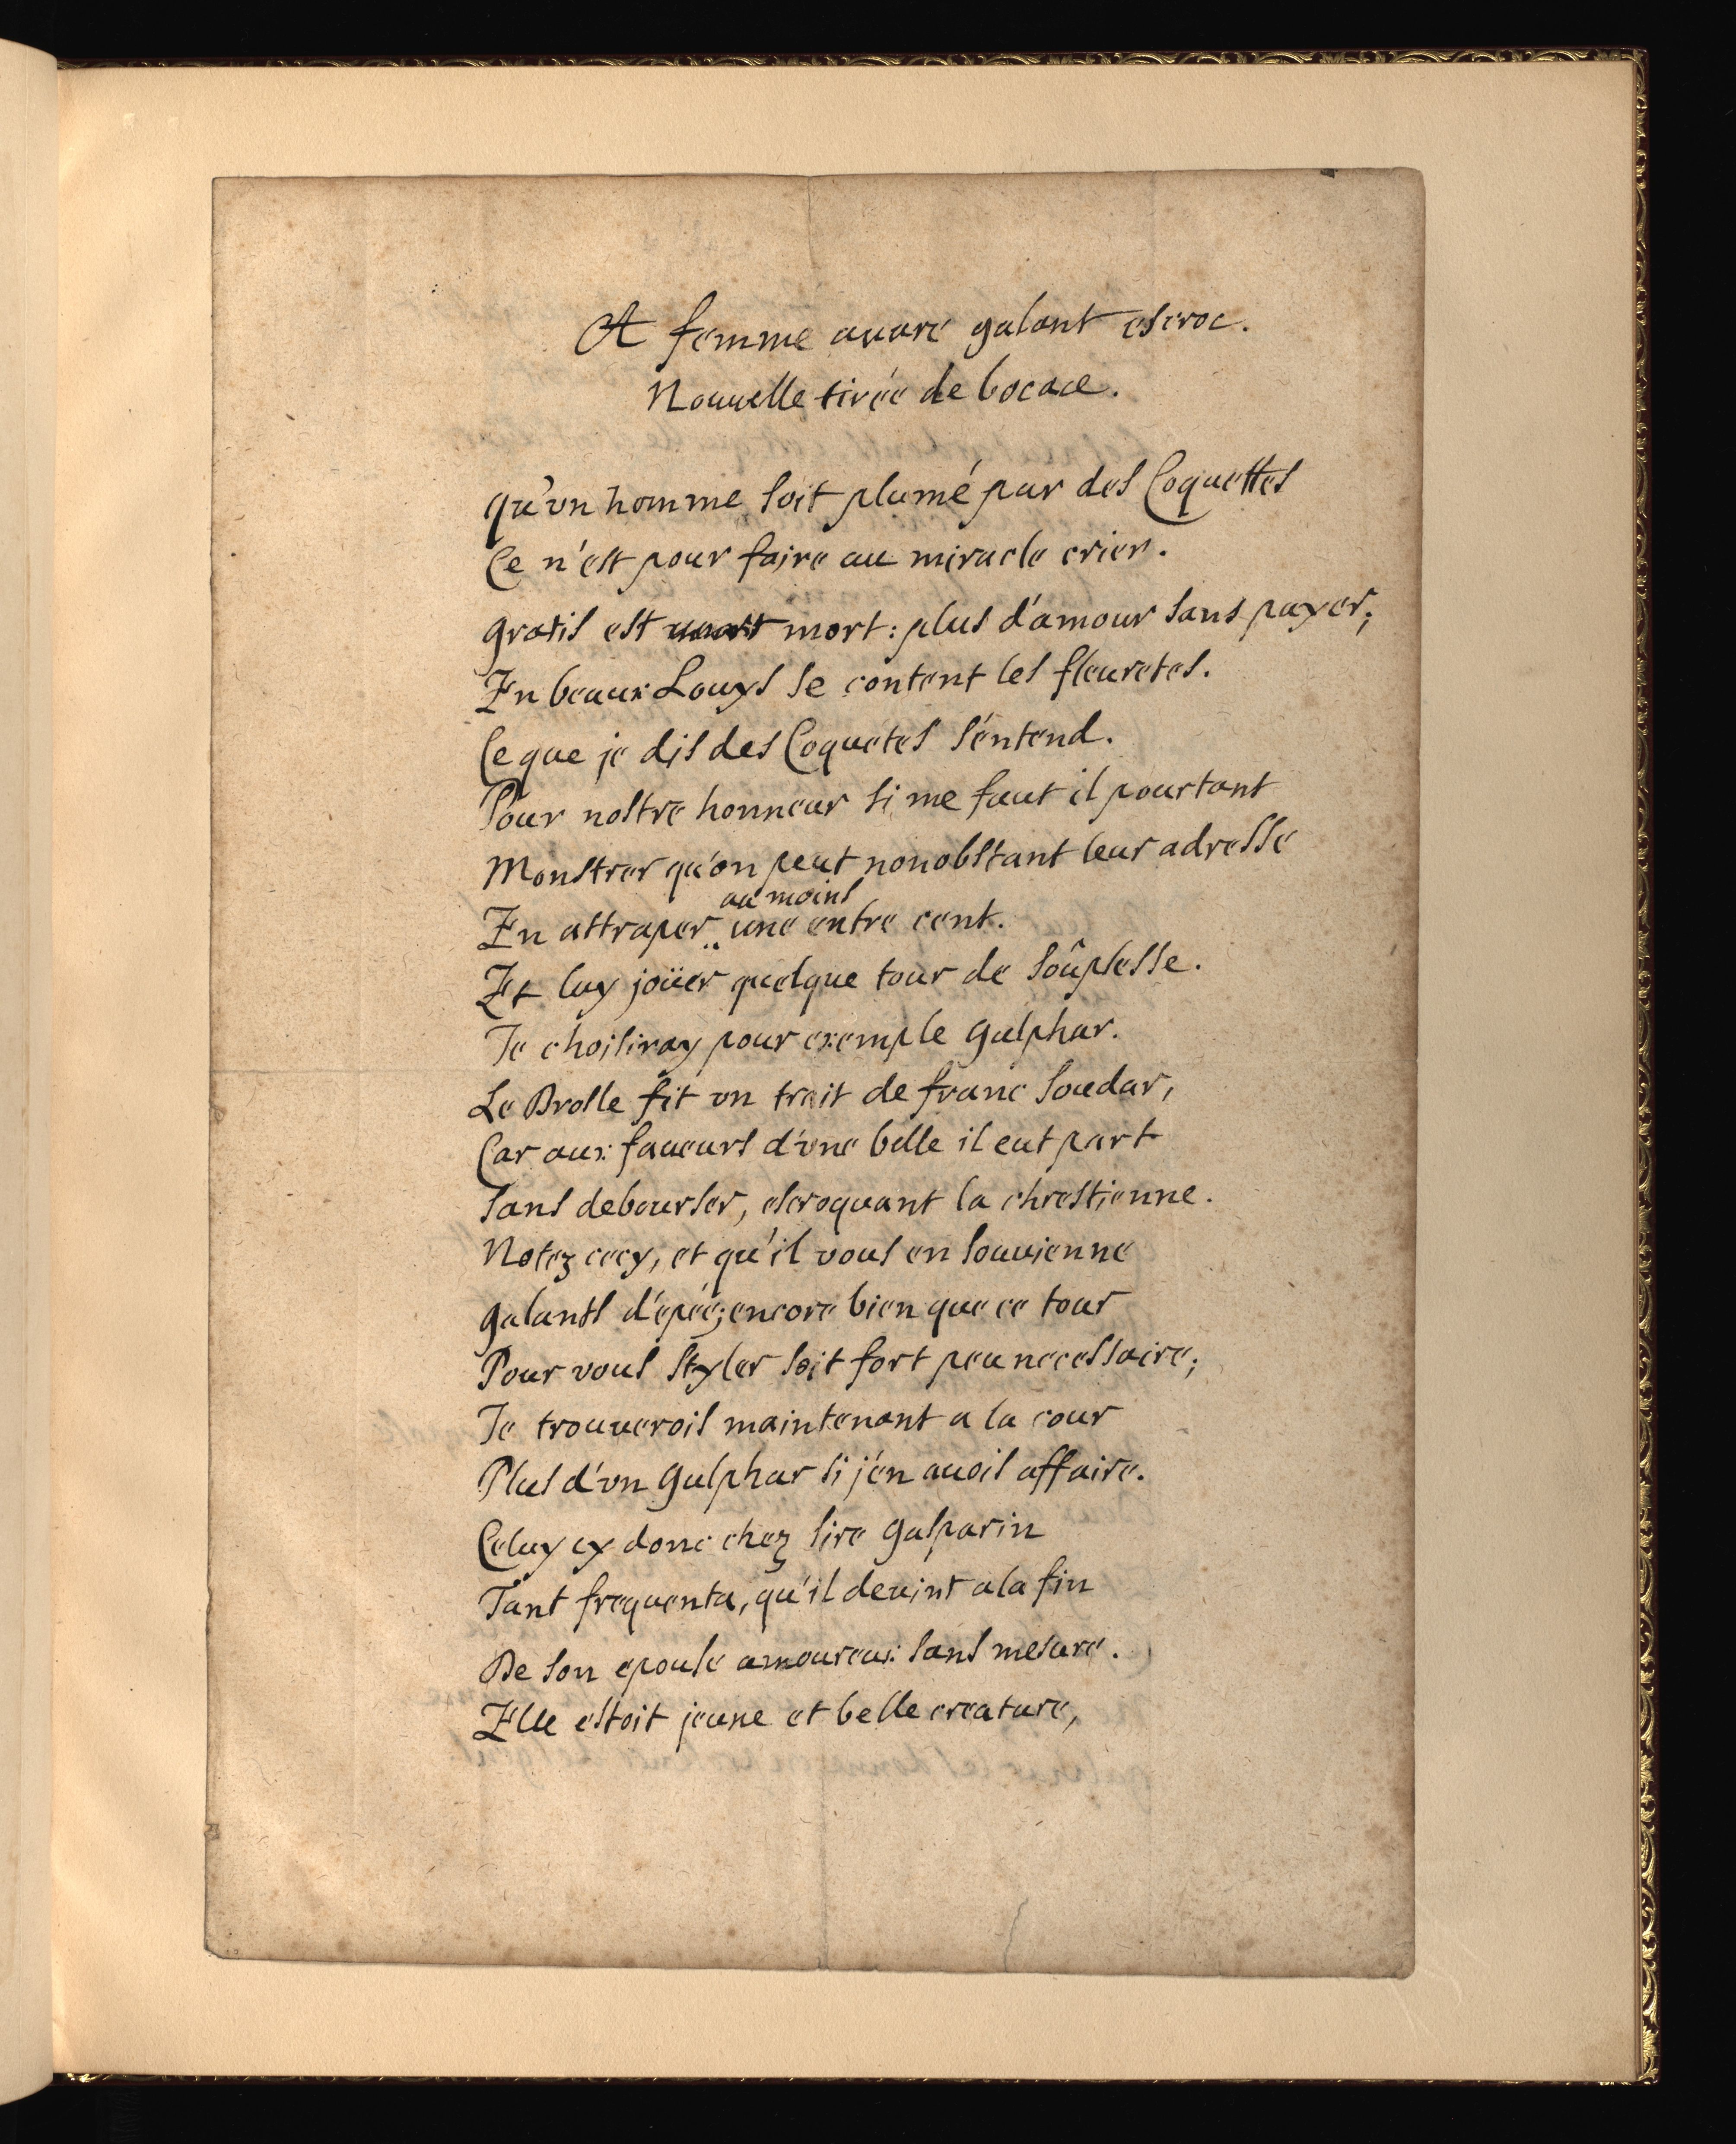 A femme auare galant escroc.
Nouuelle tirée de bocace.
qu'vn homme soit plumé par des Coquettes
Ce n'est pour faire au miracle crier.
gratis est mort : plus d'amour sans payer;
En beaux Louys se content les fleuretes.
Ce que je dis des Coquetes s'entend.
Pour nostre honneur si me faut il pourtant
Monstrer qu'on peut nonobstant leur adresse
au moins
En attraper une entre cent.
Et luy joüer quelque tour de soûplesse.
Je choisiray pour exemple gulphar.
Le Drolle fit vn trait de franc soudar,
Car aux faueurs d'vne belle il eut part
sans debourser, escroquant la chrestienne.
Notez cecy, et qu'il vous en souuienne
galants d'épée; encore bien que ce tour
Pour vous styler soit fort peu necessaire;
Je trouuerois maintenant a la cour
Plus d'vn gulphar si j'en auois affaire.
Celuy cy donc chez sire gasparin
Tant frequenta, qu'il deuint a la fin
De son epouse amoureux sans mesure.
Elle estoit jeune et belle creature,